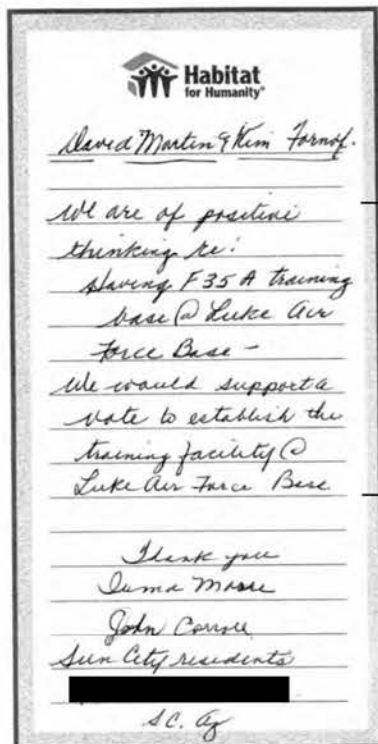 Habitat
for Humanity®
David Martin & Kim Fornof.
We are of positive
thinking re:
Having F35A training
base @ Luke Air
Force Base –
We would support a
vote to establish the
training facility @
Luke Air Force Base
Thank you
Moore
John
Sun City residents
SC. Az